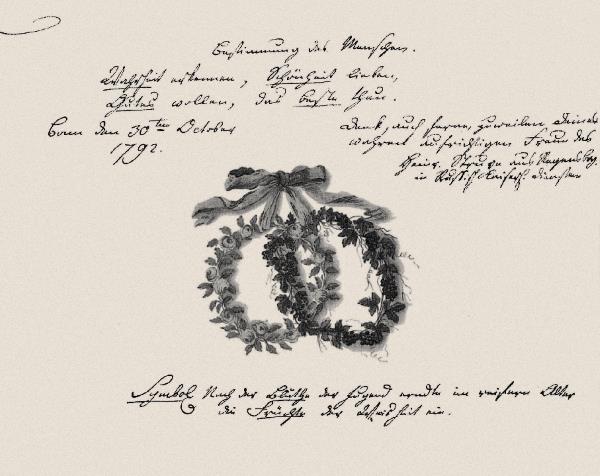 Bestimmung des Menschen.
Wahrheit erkennen, Schönheit lieben,
Gutes wollen, das beste thun.
Bonn den 30ten October
1792.
Denk, auch ferne, zuweilen deines
wahren aufrichtigen Freundes
Heinr. Struve aus Regensburg
in Russisch Kaiserl. diensten
Symbol Nach der Blüthe der Jugend erndte im reifern Alter
die Früchte der Weisheit ein.